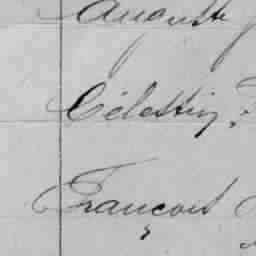 Auguste
Célestin
François